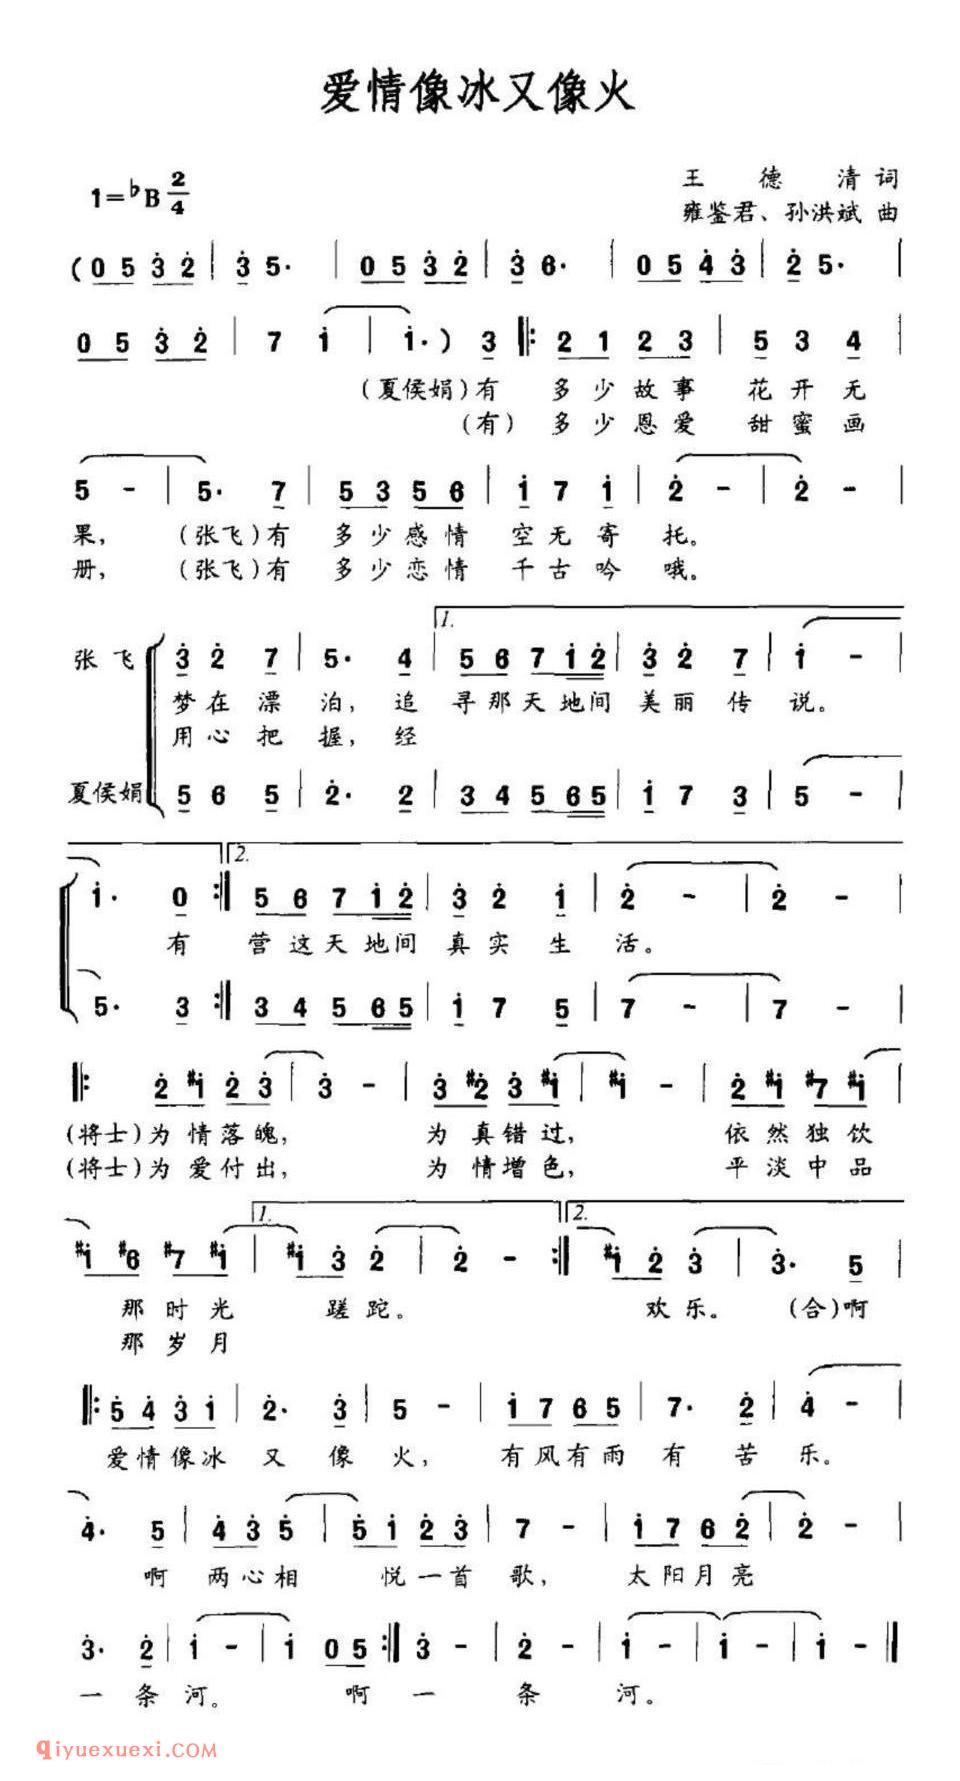 爱情像冰又像火
1=♭B 2/4
王德清 词
雍鉴君、孙洪斌 曲
(0 5 3 2 | 3 5· | 0 5 3 2 | 3 6· | 0 5 4 3 | 2 5· |
0 5 3 2 | 7 1 | 1· ) 3 |: 2 1 2 3 | 5 3 4 |
(夏侯娟)有 多少故事 花开无
(有) 多少恩爱 甜蜜画
5 - | 5· 7 | 5 3 5 6 | 1 7 1 | 2 - | 2 - |
果, (张飞)有 多少感情 空无寄托。
册, (张飞)有 多少恋情 千古吟哦。
1.
张飞 3 2 7 | 5· 4 | 5 6 7 1 2 | 3 2 7 | 1 - |
梦在漂泊, 追寻那天地间美丽传说。
用心把握, 经
夏侯娟 5 6 5 | 2· 2 | 3 4 5 6 5 | 1 7 3 | 5 - |
2.
1· 0 :| 5 6 7 1 2 | 3 2 1 | 2 - | 2 - |
有 营这天地间真实生活。
5· 3 :| 3 4 5 6 5 | 1 7 5 | 7 - | 7 - |
|: 2 #1 2 3 | 3 - | 3 #2 3 #1 | #1 - | 2 #1 #7 #1 |
(将士)为情落魄, 为真错过, 依然独饮
(将士)为爱付出, 为情增色, 平淡中品
1. 2.
#1 #6 #7 #1 | #1 3 2 | 2 - :| #1 2 3 | 3· 5 |
那时光 蹉跎。 欢乐。 (合)啊
那岁月
|: 5 4 3 1 | 2· 3 | 5 - | 1 7 6 5 | 7· 2 | 4 - |
爱情像冰又像火, 有风有雨有苦乐。
4· 5 | 4 3 5 | 5 1 2 3 | 7 - | 1 7 6 2 | 2 - |
啊 两心相 悦一首歌, 太阳月亮
3· 2 | 1 - | 1 0 5 :| 3 - | 2 - | 1 - | 1 - | 1 - ||
一条河。 啊一条河。
qiyuexuexi.COM